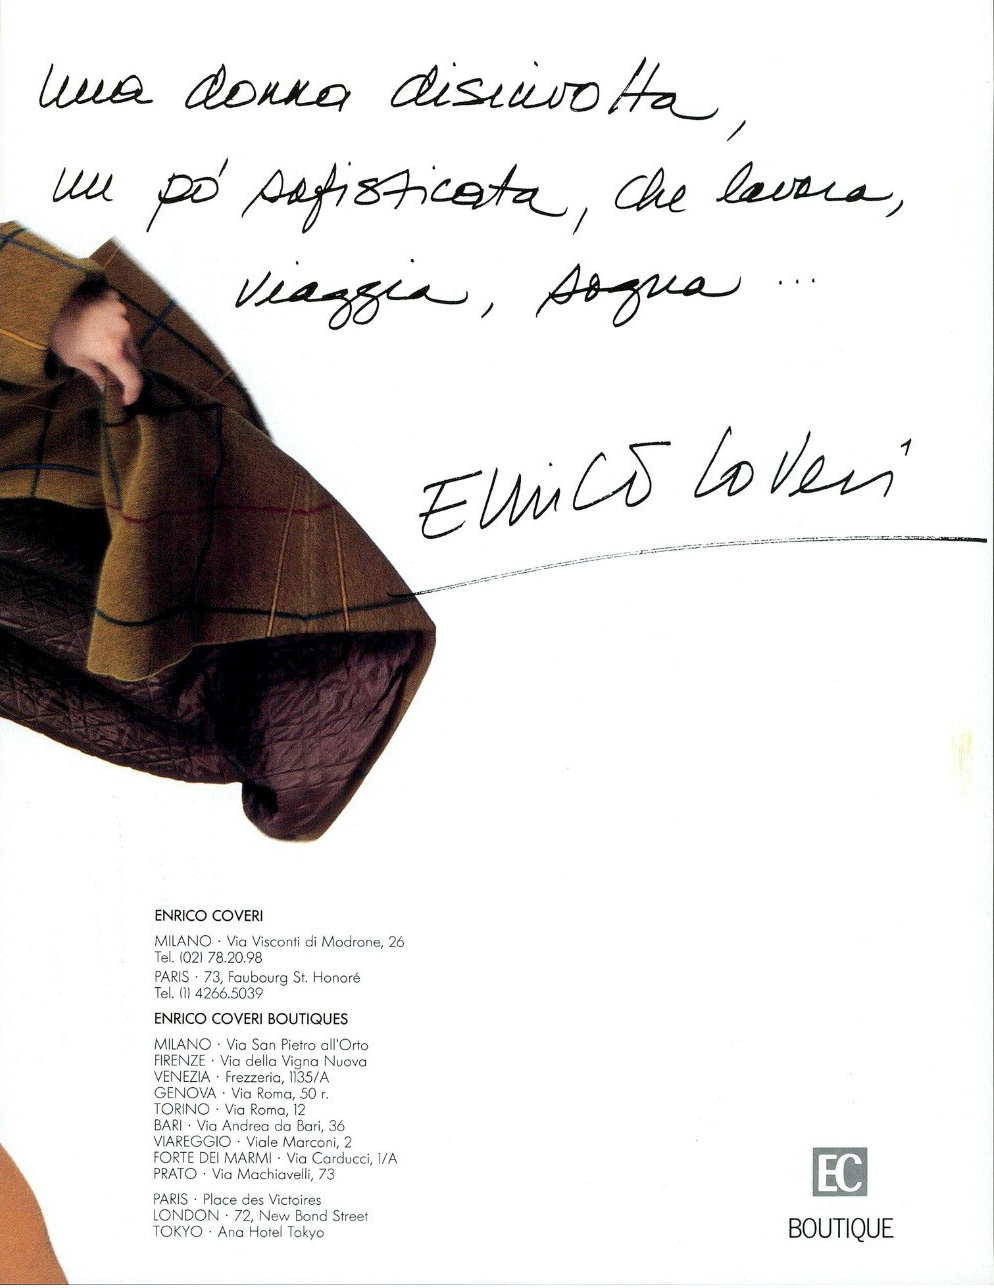 una donna disinvolta,
un pó sofisticata, che lavora,
viaggia, sogna ...
Enrico Coveri
ENRICO COVERI
MILANO · Via Visconti di Modrone, 26
Tel. (02) 78.20.98
PARIS · 73, Faubourg St. Honoré
Tel. (1) 4266.5039
ENRICO COVERI BOUTIQUES
MILANO · Via San Pietro all'Orto
FIRENZE · Via della Vigna Nuova
VENEZIA · Frezzeria, 1135/A
GENOVA · Via Roma, 50 r.
TORINO · Via Roma, 12
BARI · Via Andrea da Bari, 36
VIAREGGIO · Viale Marconi, 2
FORTE DEI MARMI · Via Carducci, 1/A
PRATO · Via Machiavelli, 73
PARIS · Place des Victoires
LONDON · 72, New Bond Street
TOKYO · Ana Hotel Tokyo
EC
BOUTIQUE